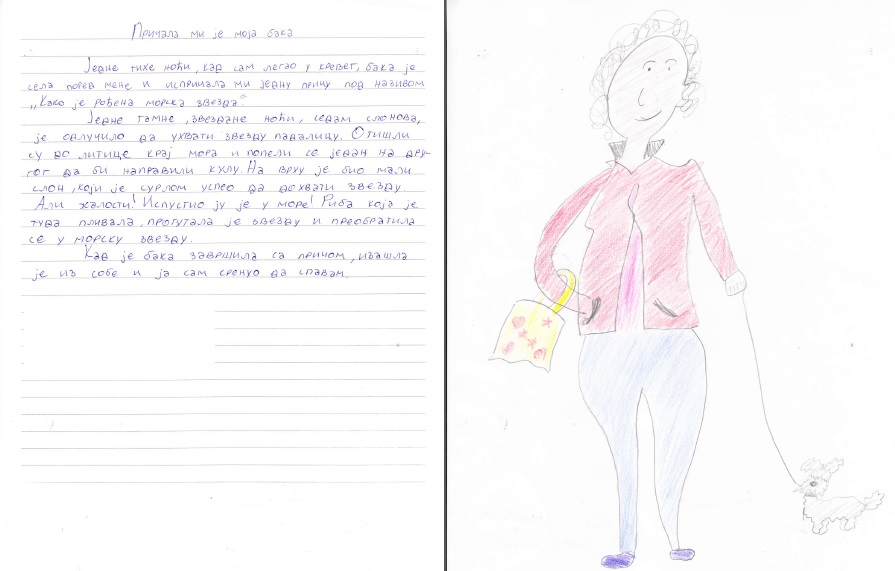 Причала ми је моја бака
Једне тихе ноћи, кад сам легао у кревет, бака је
села поред мене и испричала ми једну причу под називом
„Како је рођена морска звезда“
Једне тамне, звездане ноћи, седам слонова,
је одлучило да ухвати звезду падалицу. Отишли
су до литице крај мора и попели се један на дру-
гог да би направили кулу. На врху је био мали
слон, који је сурлом успео да дохвати звезду.
Али жалости! Испустио ју је у море! Риба која је
туда пливала, прогутала је звезду и преобратила
се у морску звезду.
Кад је бака завршила са причом, изашла
је из собе и ја сам кренуо да спавам.